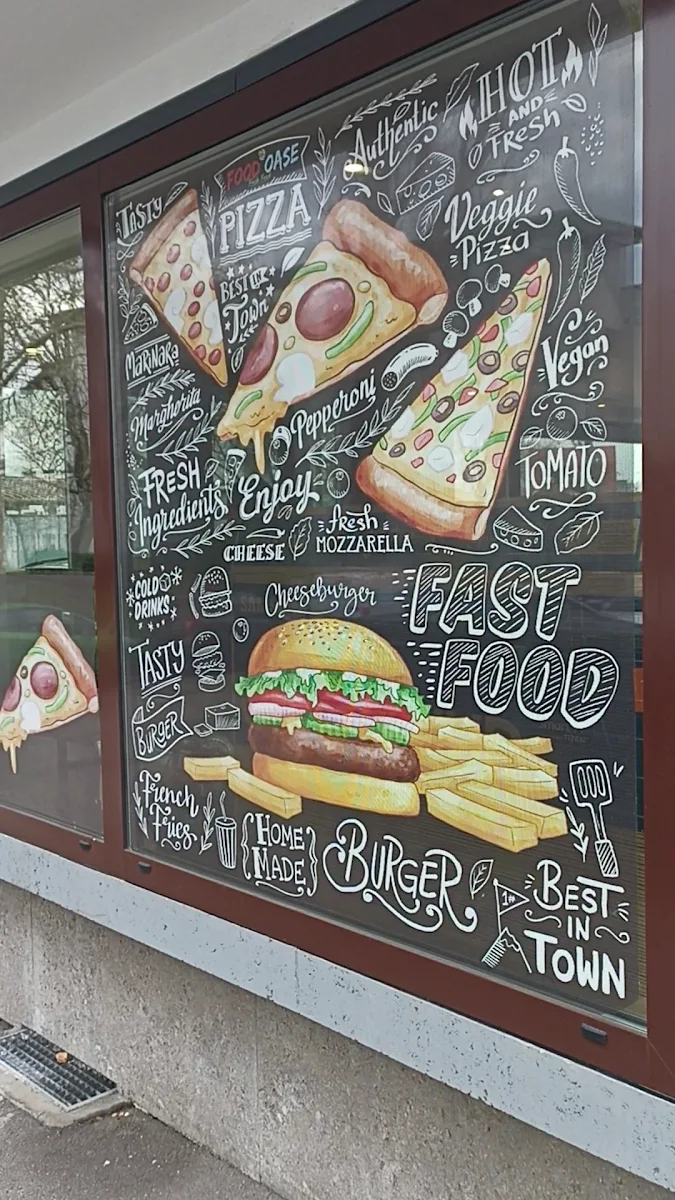 TASTY
FOOD OASE
PIZZA
BEST IN
Town
Authentic
HOT
AND
FRESH
Veggie
Pizza
MARINARA
Margherita
FRESH
Ingredients
Pepperoni
Enjoy
CHEESE
fresh
MOZZARELLA
Vegan
TOMATO
COLD
DRINKS
Cheeseburger
FAST
FOOD
TASTY
BURGER
French
Fries
HOME
MADE
BURGER
1#
BEST
IN
TOWN